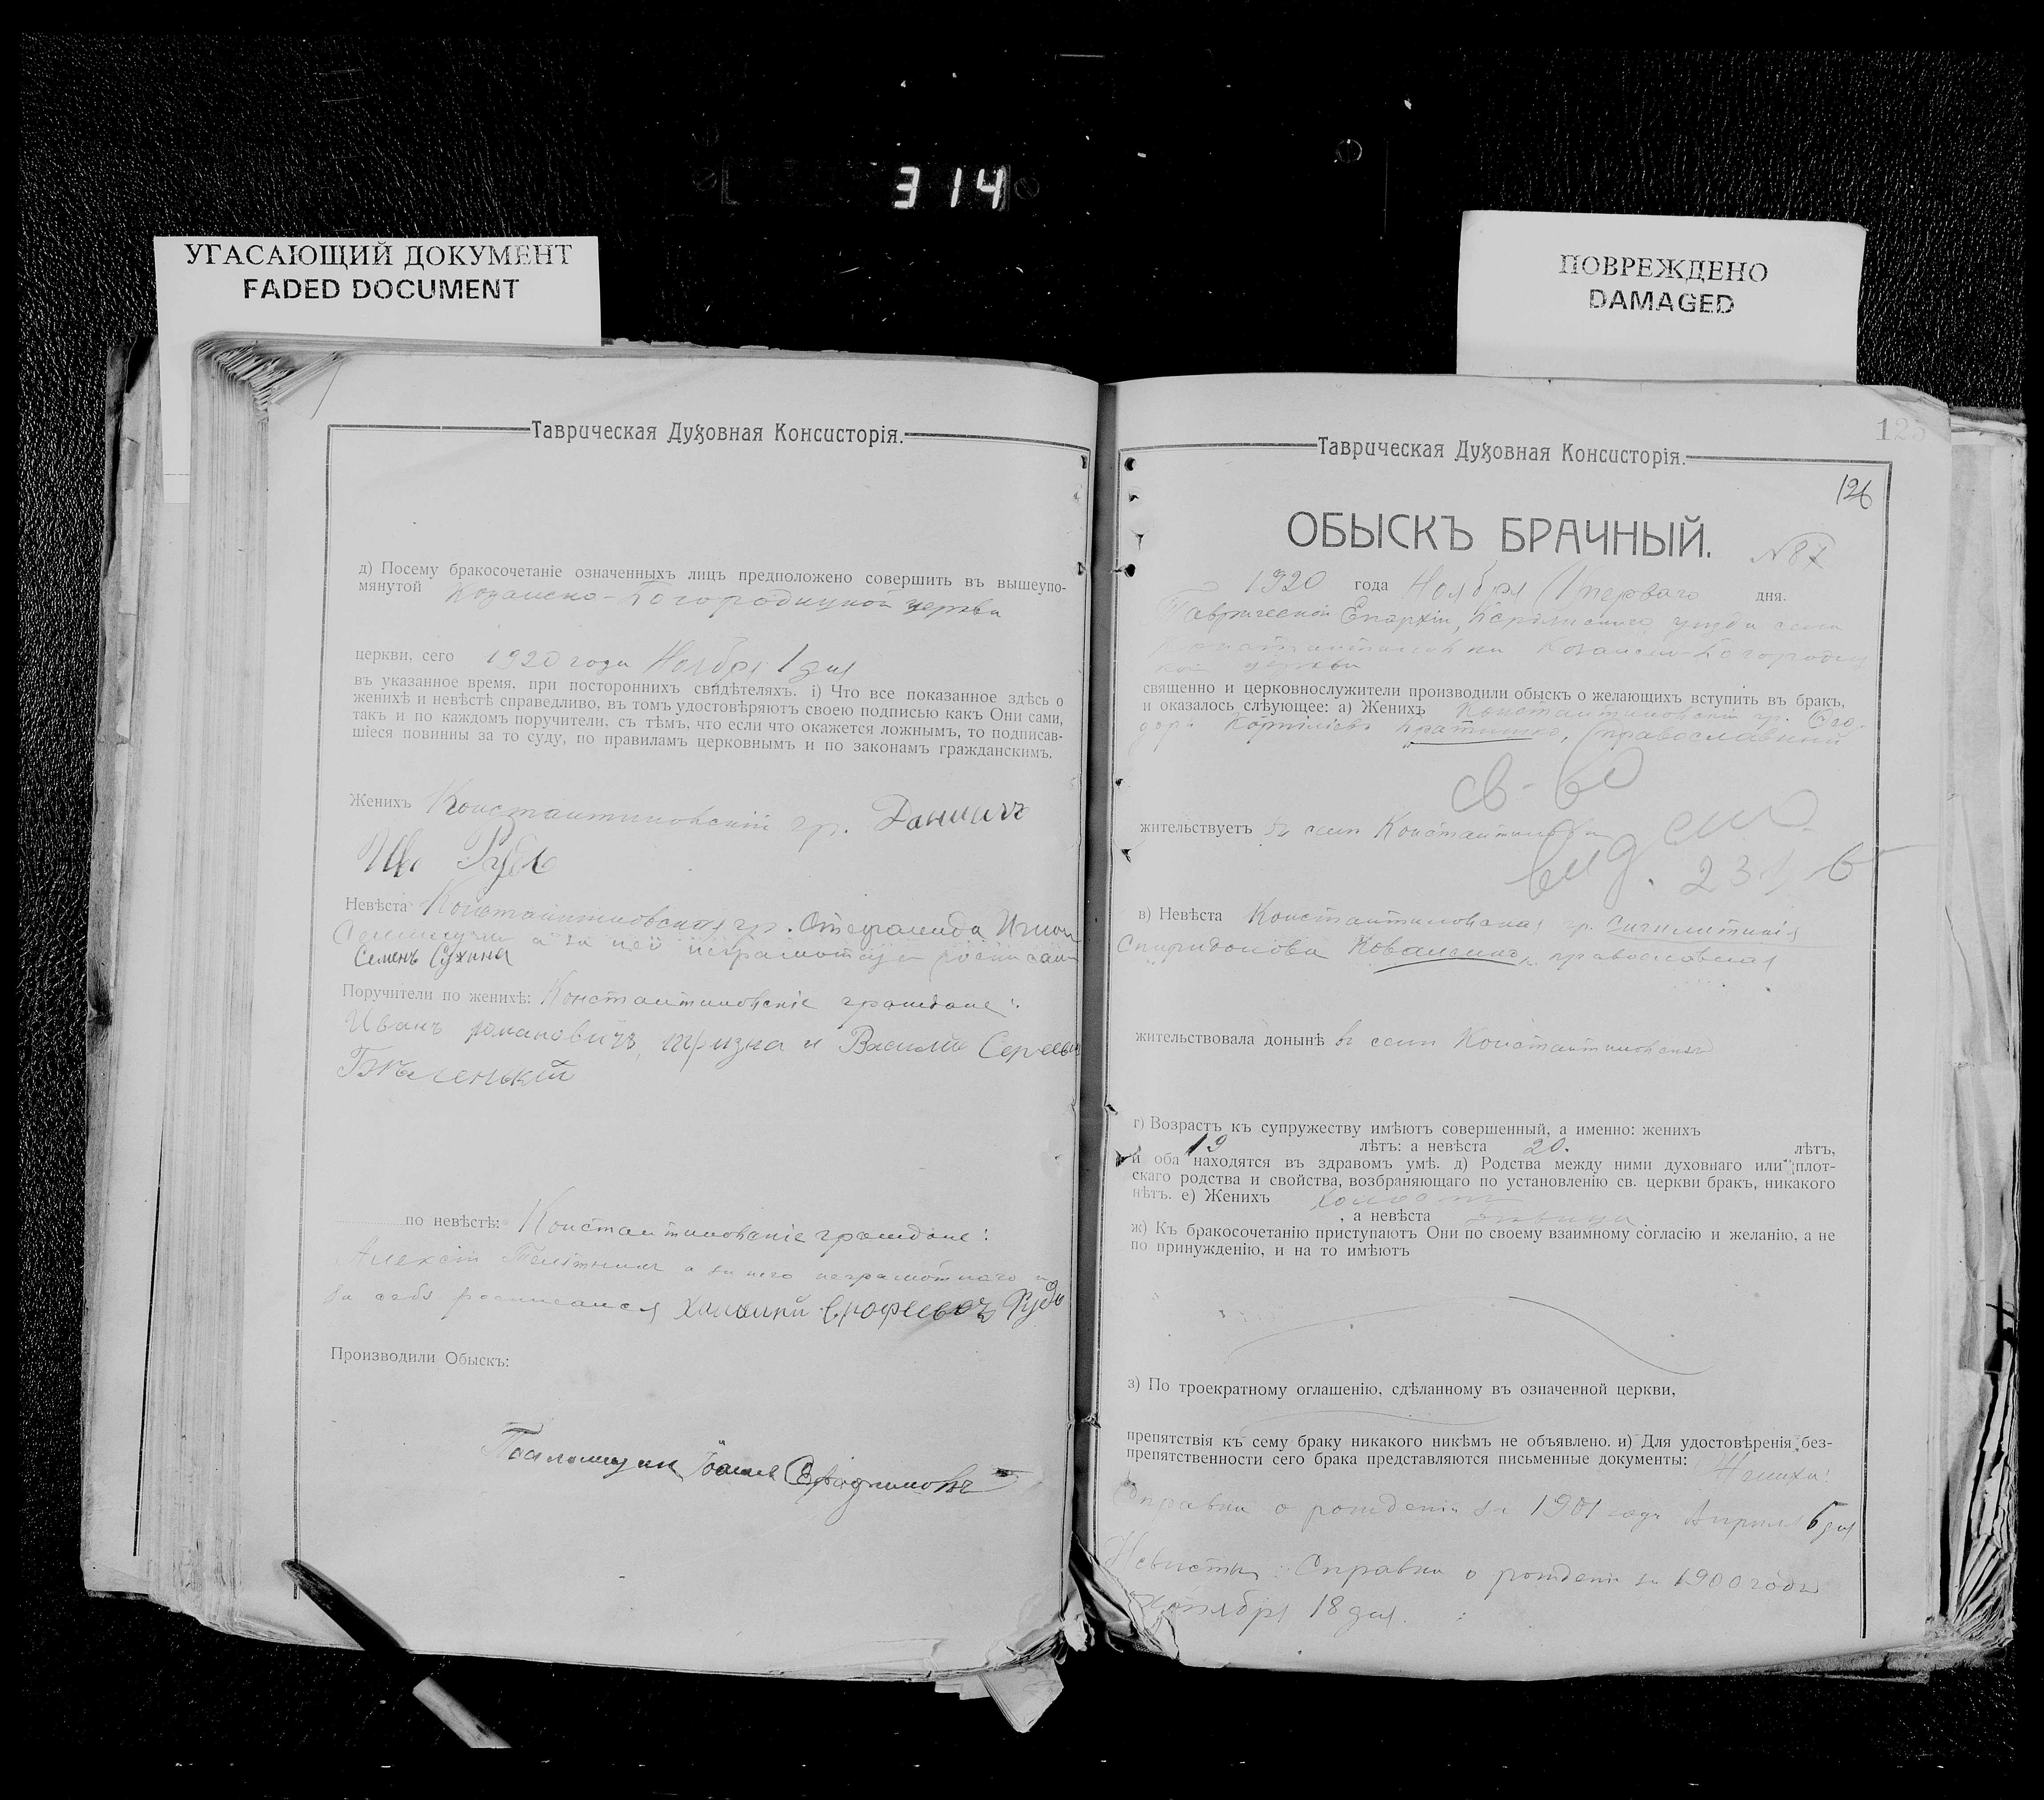 314
УГАСАЮЩИЙ ДОКУМЕНТ
FADED DOCUMENT
ПОВРЕЖДЕНО
DAMAGED
Таврическая Духовная Консисторія.
д) Посему бракосочетаніе означенныхъ лицъ предположено совершить въ вышеупо-
мянутой Казанско-Богородицкой церкви
церкви, сего 1920 года Ноября 1 дня
въ указанное время, при постороннихъ свидѣтеляхъ. і) Что все показанное здѣсь о
женихѣ и невѣстѣ справедливо, въ томъ удостовѣряютъ своею подписью какъ Они сами,
такъ и по каждомъ поручители, съ тѣмъ, что если что окажется ложнымъ, то подписав-
шіеся повинны за то суду, по правиламъ церковнымъ и по законамъ гражданскимъ.
Женихъ Константиновскій гр. Даниилъ
Ив. Рубл
Невѣста Константиновская гр. Степанида
а за нея неграмотную
Семенъ Сухина
Поручители по женихѣ: Константиновскіе граждане:
Иванъ романовичъ тризна и Василій Сергѣевич
Бѣленькій
по невѣстѣ: Константиновскіе граждане:
Алексій а за него неграмотнаго и
за себя росписался
Производили Обыскъ:
Псаломщикъ
Таврическая Духовная Консисторія.
125
126
ОБЫСКЪ БРАЧНЫЙ.
№87
1920 года Ноября 1 перваго дня.
Таврической Епархіи, Бердянскаго уѣзда села
Константиновки Казанско-Богородиц
кой церкви
священно и церковнослужители производили обыскъ о желающихъ вступить въ бракъ,
и оказалось слѣующее: а) Женихъ Константиновскій гр. Ѳео-
доръ Корниліевъ Братишко, православный
св-во
жительствуетъ въ селѣ Константиновкѣ
выд. 231
в) Невѣста Константиновская гр.
Спиридонова Коваленко, православная
жительствовала донынѣ въ селѣ Константиновкѣ
г) Возрастъ къ супружеству имѣютъ совершенный, а именно: женихъ
19 лѣтъ: а невѣста 20. лѣтъ,
и оба находятся въ здравомъ умѣ. д) Родства между ними духовнаго или плот-
скаго родства и свойства, возбраняющаго по установленію св. церкви бракъ, никакого
нѣтъ. е) Женихъ холостъ
, а невѣста дѣвица
ж) Къ бракосочетанію приступаютъ Они по своему взаимному согласію и желанію, а не
по принужденію, и на то имѣютъ
з) По троекратному оглашенію, сдѣланному въ означенной церкви,
препятствія къ сему браку никакого никѣмъ не объявлено. и) Для удостовѣренія без-
препятственности сего брака представляются письменные документы: Жениха:
Справка о рожденіи за 1901 годъ Апрѣля 6 дня
Невѣсты: Справка о рожденіи за 1900 годъ
18 дня.